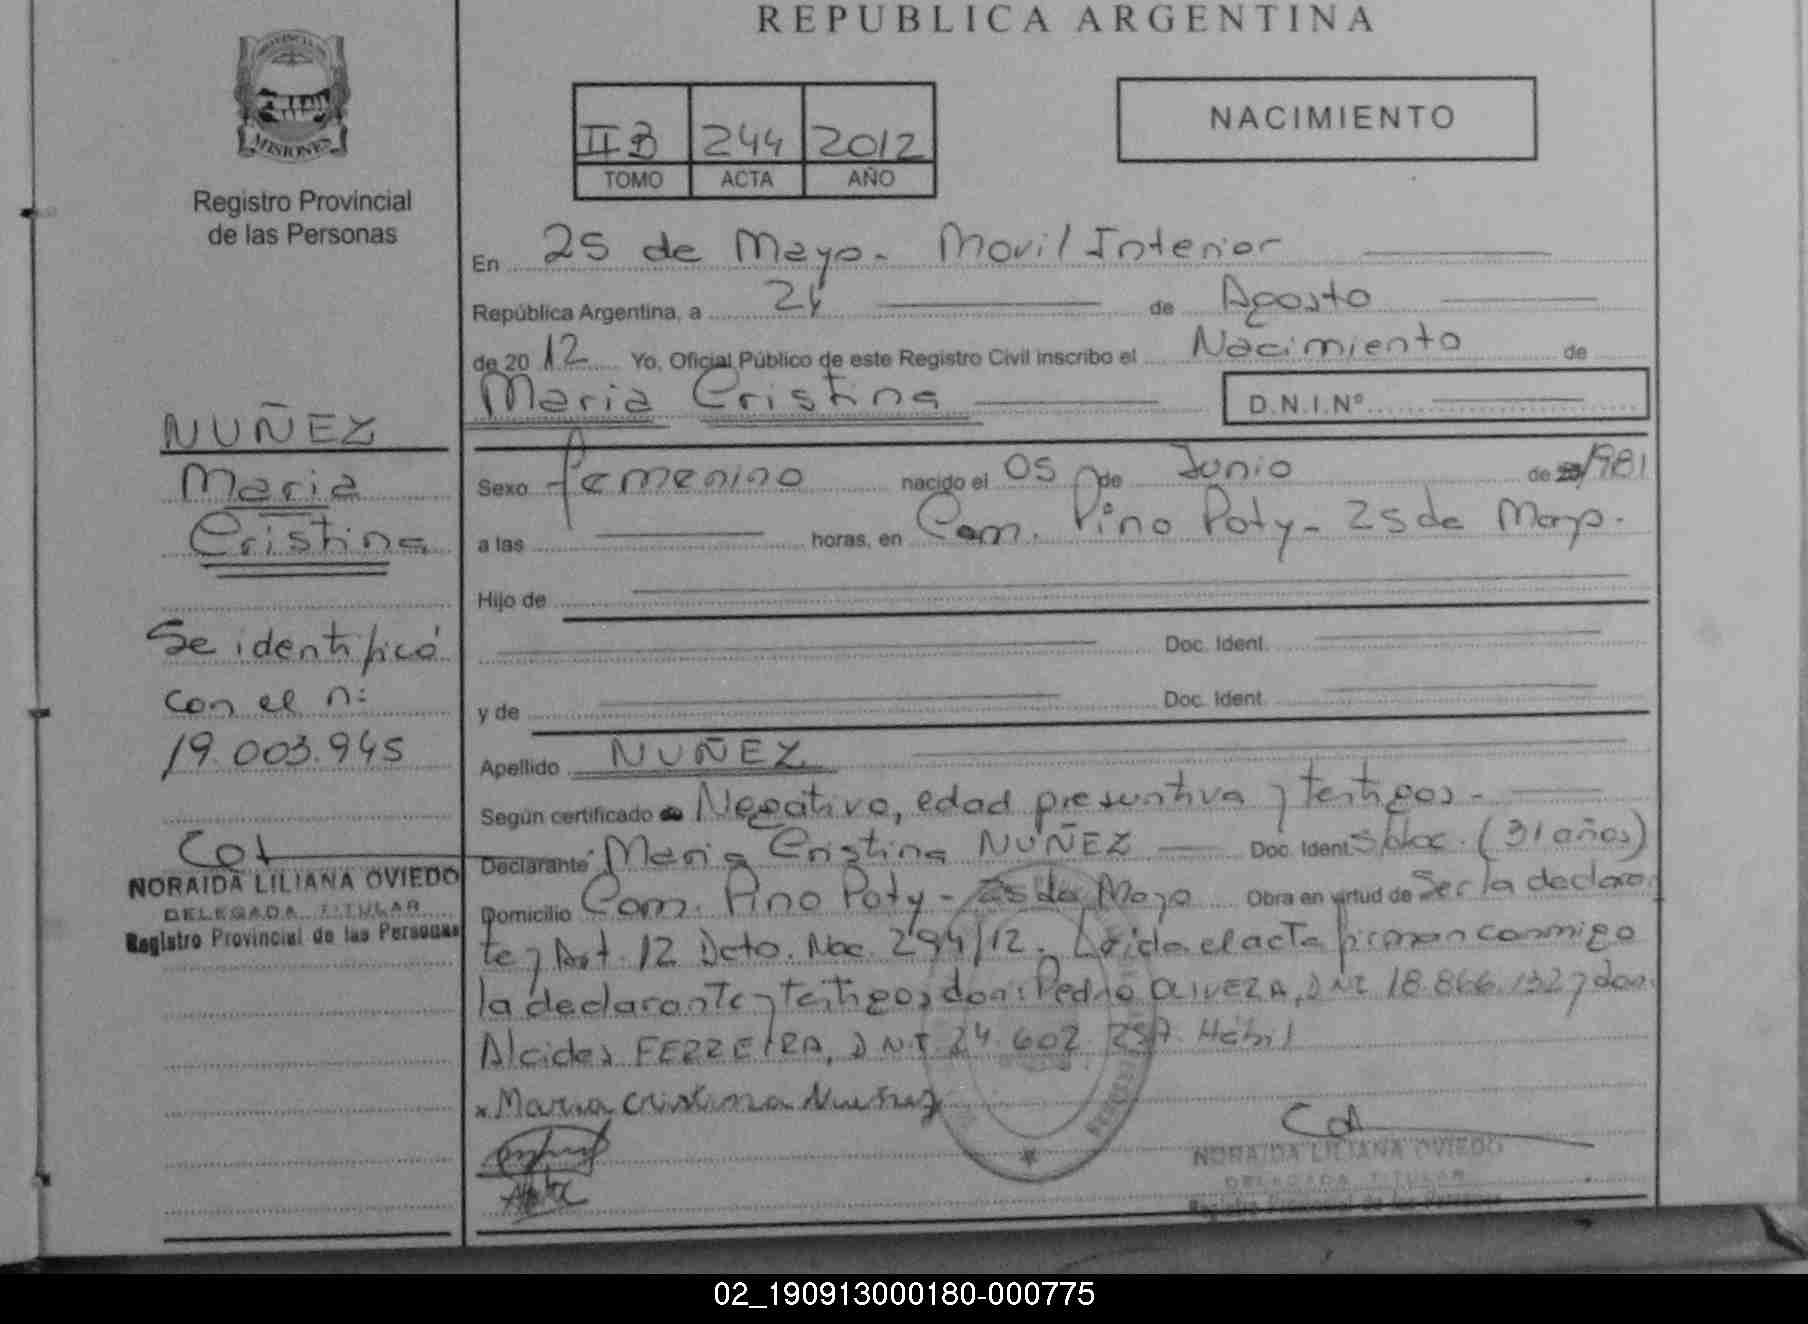 REPUBLICA ARGENTINA
PROVINCIA DE
MISIONES
Registro Provincial
de las Personas
II B 244 2012
TOMO ACTA AÑO
NACIMIENTO
En 25 de Mayo - Movil Interior
República Argentina, a 24 de Agosto
de 2012 Yo, Oficial Público de este Registro Civil inscribo el Nacimiento de
Maria Cristina D.N.I.Nº
NUÑEZ
Maria
Cristina
Se identificó
con el n:
19.003.945
NORAIDA LILIANA OVIEDO
DELEGADA TITULAR
Registro Provincial de las Personas
Sexo femenino nacido el 05 de Junio de 1981
a las horas, en Com. Pino Poty - 25 de Mayo.
Hijo de
Doc. Ident.
y de Doc. Ident.
Apellido NUÑEZ
Según certificado Negativo, edad presuntiva y testigos -
Declarante Maria Cristina NUÑEZ Doc. Ident. S/doc. (31 años)
Domicilio Com. Pino Poty - 25 de Mayo Obra en virtud de Ser la declaran
te y Art. 12 Dcto. Nac. 294/12. Leída el acta firman conmigo
la declarante y testigos don: Pedro OLIVERA, DNI 18.866.132 y don:
Alcides FERREIRA, DNI 24.602.257. Hábil
x Maria cristina Nuñez
NORAIDA LILIANA OVIEDO
DELEGADA TITULAR
Registro Provincial de las Personas
02_190913000180-000775